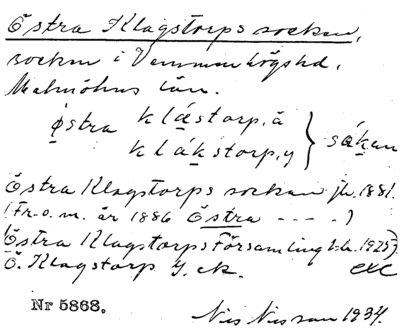 Östra Klagstorps socken,
socken i Vemmenhögs hd.
Malmöhus län.
östra klästorp, ä } såkan
klákstorp, y
Östra Klagstorps socken jb. 1881.
(Fr. o. m. år 1886 Östra - - - -)
(Östra Klagstorps Församling 1925).
Ö. Klagstorp G. ek.
Nr 5868.
Nils Nilsson 1934.